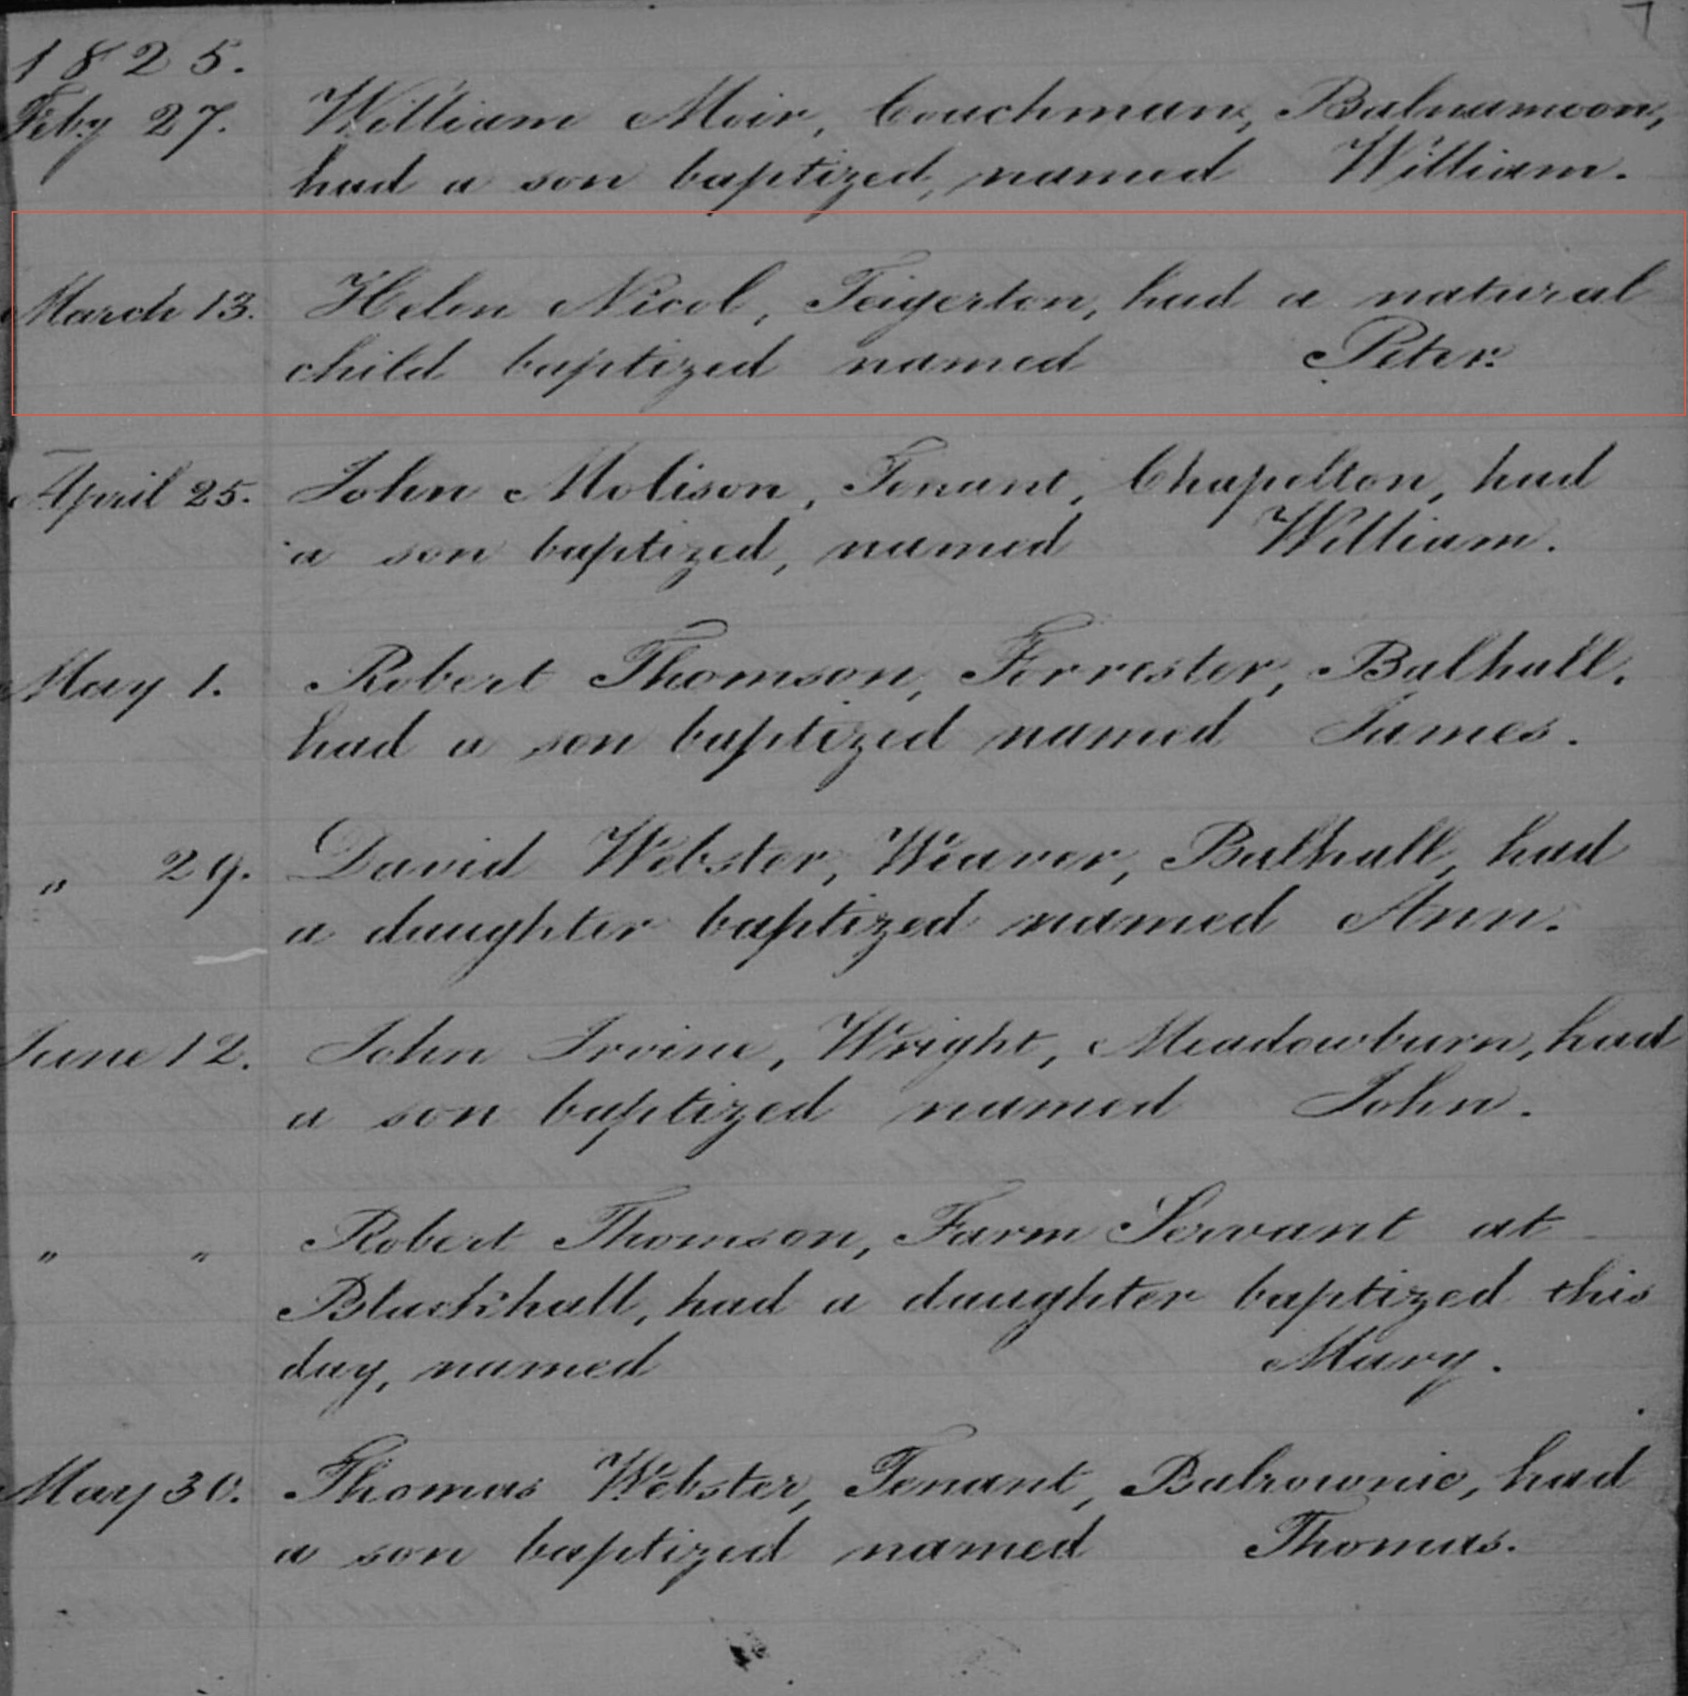 7
1825.
Feby 27. William Moir, Couchman, Balnamoon,
had a son baptized, named William.
March 13. Helen Nicol, Teigerton, had a natural
child baptized named Peter.
April 25. John Molison, Tenant, Chapelton, had
a son baptized, named William.
May 1. Robert Thomson, Forrester, Balhall,
had a son baptized named James.
„ 29. David Webster, Weaver, Balhall, had
a daughter baptized named Ann.
June 12. John Irvine, Wright, Meadowburn, had
a son baptized named John.
„ „ Robert Thomson, Farm Servant at
Blackhall, had a daughter baptized this
day, named Mary.
May 30. Thomas Webster, Tenant, Balrownie, had
a son baptized named Thomas.